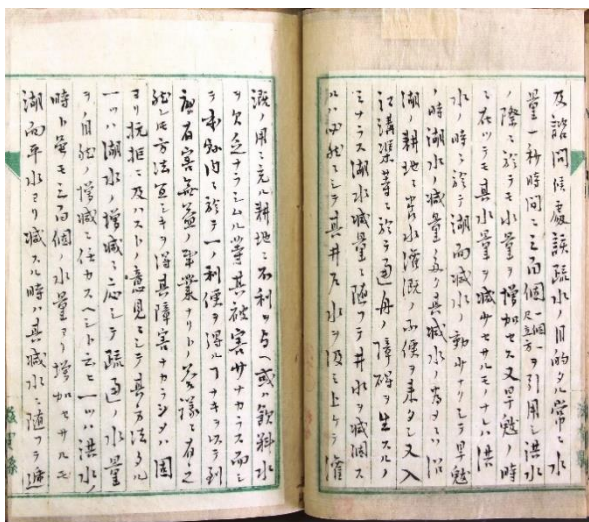 及諮問候處該疏水ノ目的タル常ニ水
量一秒時間ニ三百個一個ハ一尺立方ヲ引用シ洪水
ノ際ニ於テモ水量ヲ増加セス又旱魃ノ時
ニ在ツテモ其水量ヲ減少セサルモノナレハ洪
水ノ時ニ於テ湖面減水ノ功少ナリシテ旱魃
ノ時湖水ノ減量多ク其減水ノ為メニハ沿
湖ノ耕地ニ在ツテ水灌漑ノ不便ヲ来タシ又入
江溝渠等ニ於テ通舟ノ障碍ヲ生スルノ
ミナラス湖水減量ニ随フテ井水ヲ減スル
ハ必然ニシテ其井戸水ヲ汲ミ上ケテ灌
漑ノ用ニ充ル耕地ニ不利ヲ与ヘ或ハ飲料水
ヲ欠乏ナラシムル等其被害少ナカラス而シ
テ本縣内ニ於テ一ノ利便ヲ得ルコナキヲ以テ到
底有害無益ノ事業ナリトノ答議モ有之
然レモ方法宜シキヲ得其障害ナカラシメハ固
ヨリ抗拒ニ及ハストノ意見ニシテ其方法タル
一ツハ湖水ノ増減ニ応シテ疏通ノ水量
ヲ自然ノ増減ニ任カスヘシト云ヒ一ツハ洪水ノ
時ト雖モ三百個ノ水量ヨリ増加セサルモ
湖面平水ヨリ減スル時ハ其減水ニ随フテ逓
滋賀縣